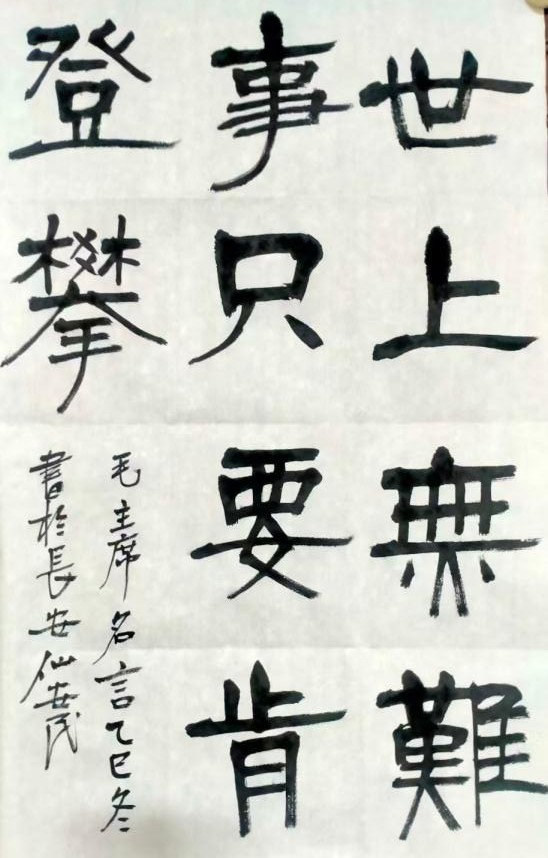 世上無難
事只要肯
登攀
毛主席名言乙巳冬
書於長安仙安民